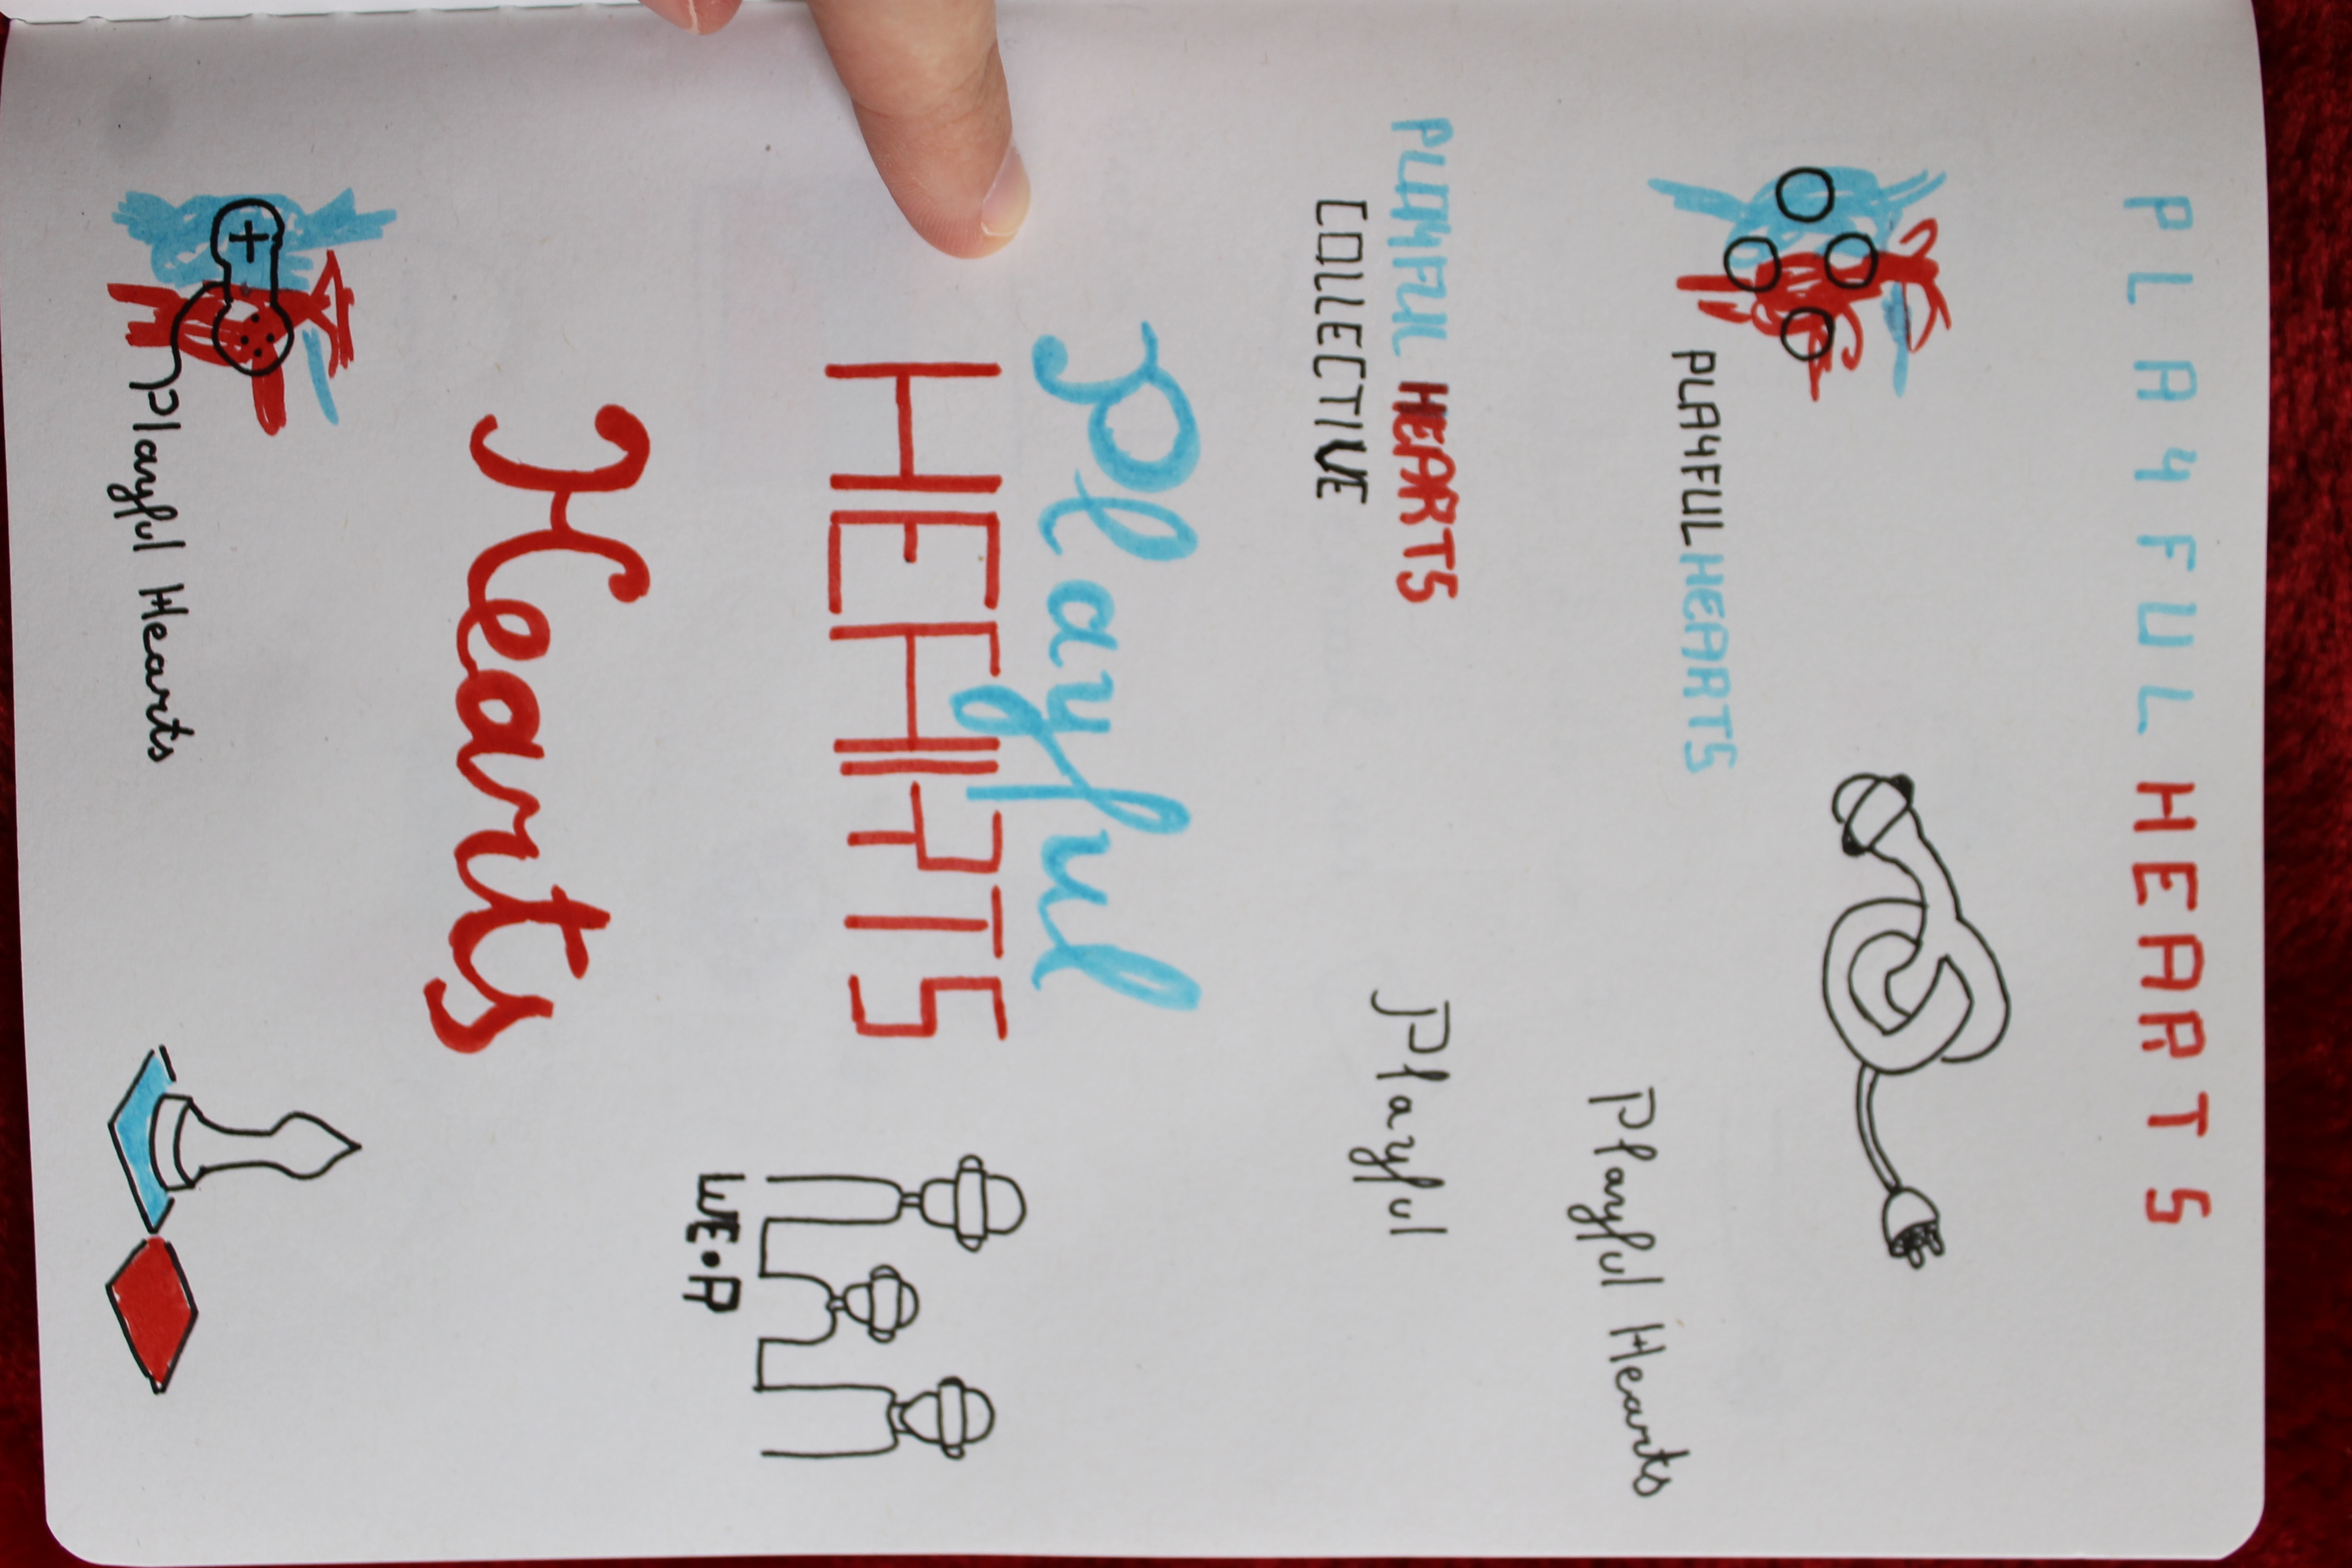 PLAYFUL HEARTS
PLAYFULHEARTS
Playful Hearts
PLAYFUL HEARTS
COLLECTIVE
Playful
Playful
HEARTS
WE•R
Hearts
Playful Hearts